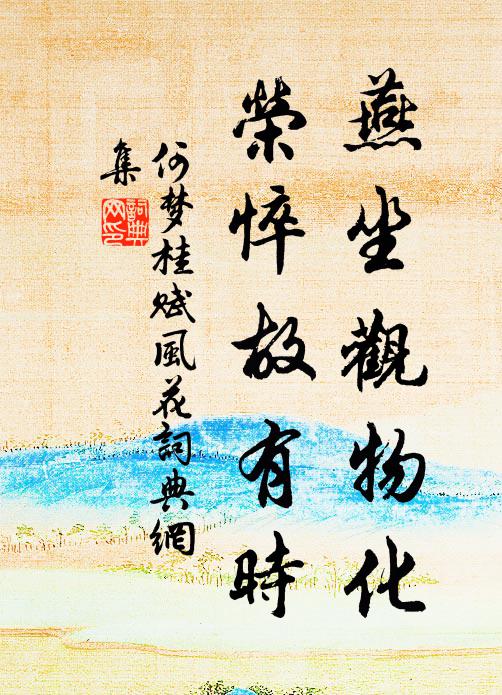 燕坐觀物化
榮悴故有時
何梦桂赋風花詞典網
集
詞典
网印